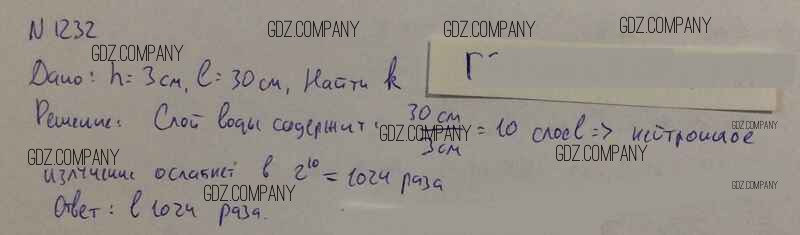 N 1232
Дано: h = 3 см, l = 30 см, Найти k
Решение: Слой воды содержит: 30 см / 3 см = 10 слоев => нейтронное
излучение ослабнет в 2^10 = 1024 раза
Ответ: в 1024 раза.
GDZ.COMPANY
GDZ.COMPANY
GDZ.COMPANY
GDZ.COMPANY
GDZ.COMPANY
GDZ.COMPANY
GDZ.COMPANY
GDZ.COMPANY
GDZ.COMPANY
GDZ.COMPANY